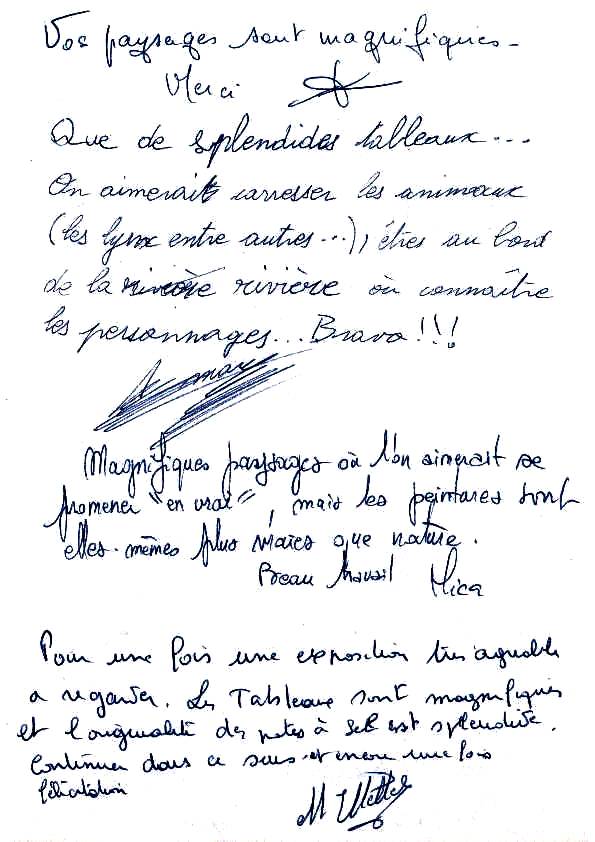 Vos paysages sont magnifiques -
Merci
Que de splendides tableaux...
On aimerait carresser les animaux
(les lynx entre autres...), êtres au bord
de la rivière rivière où connaître
les personnages... Bravo !!!
max
Magnifiques paysages où l'on aimerait se
promener "en vrai", mais les peintures sont
elles-mêmes plus vraies que nature.
Beau travail Mica
Pour une fois une exposition très agréable
a regarder. Les Tableaux sont magnifiques
et l'originalité des pates à sel est splendide.
Continuer dans ce sens et encore une fois
félicitation
M